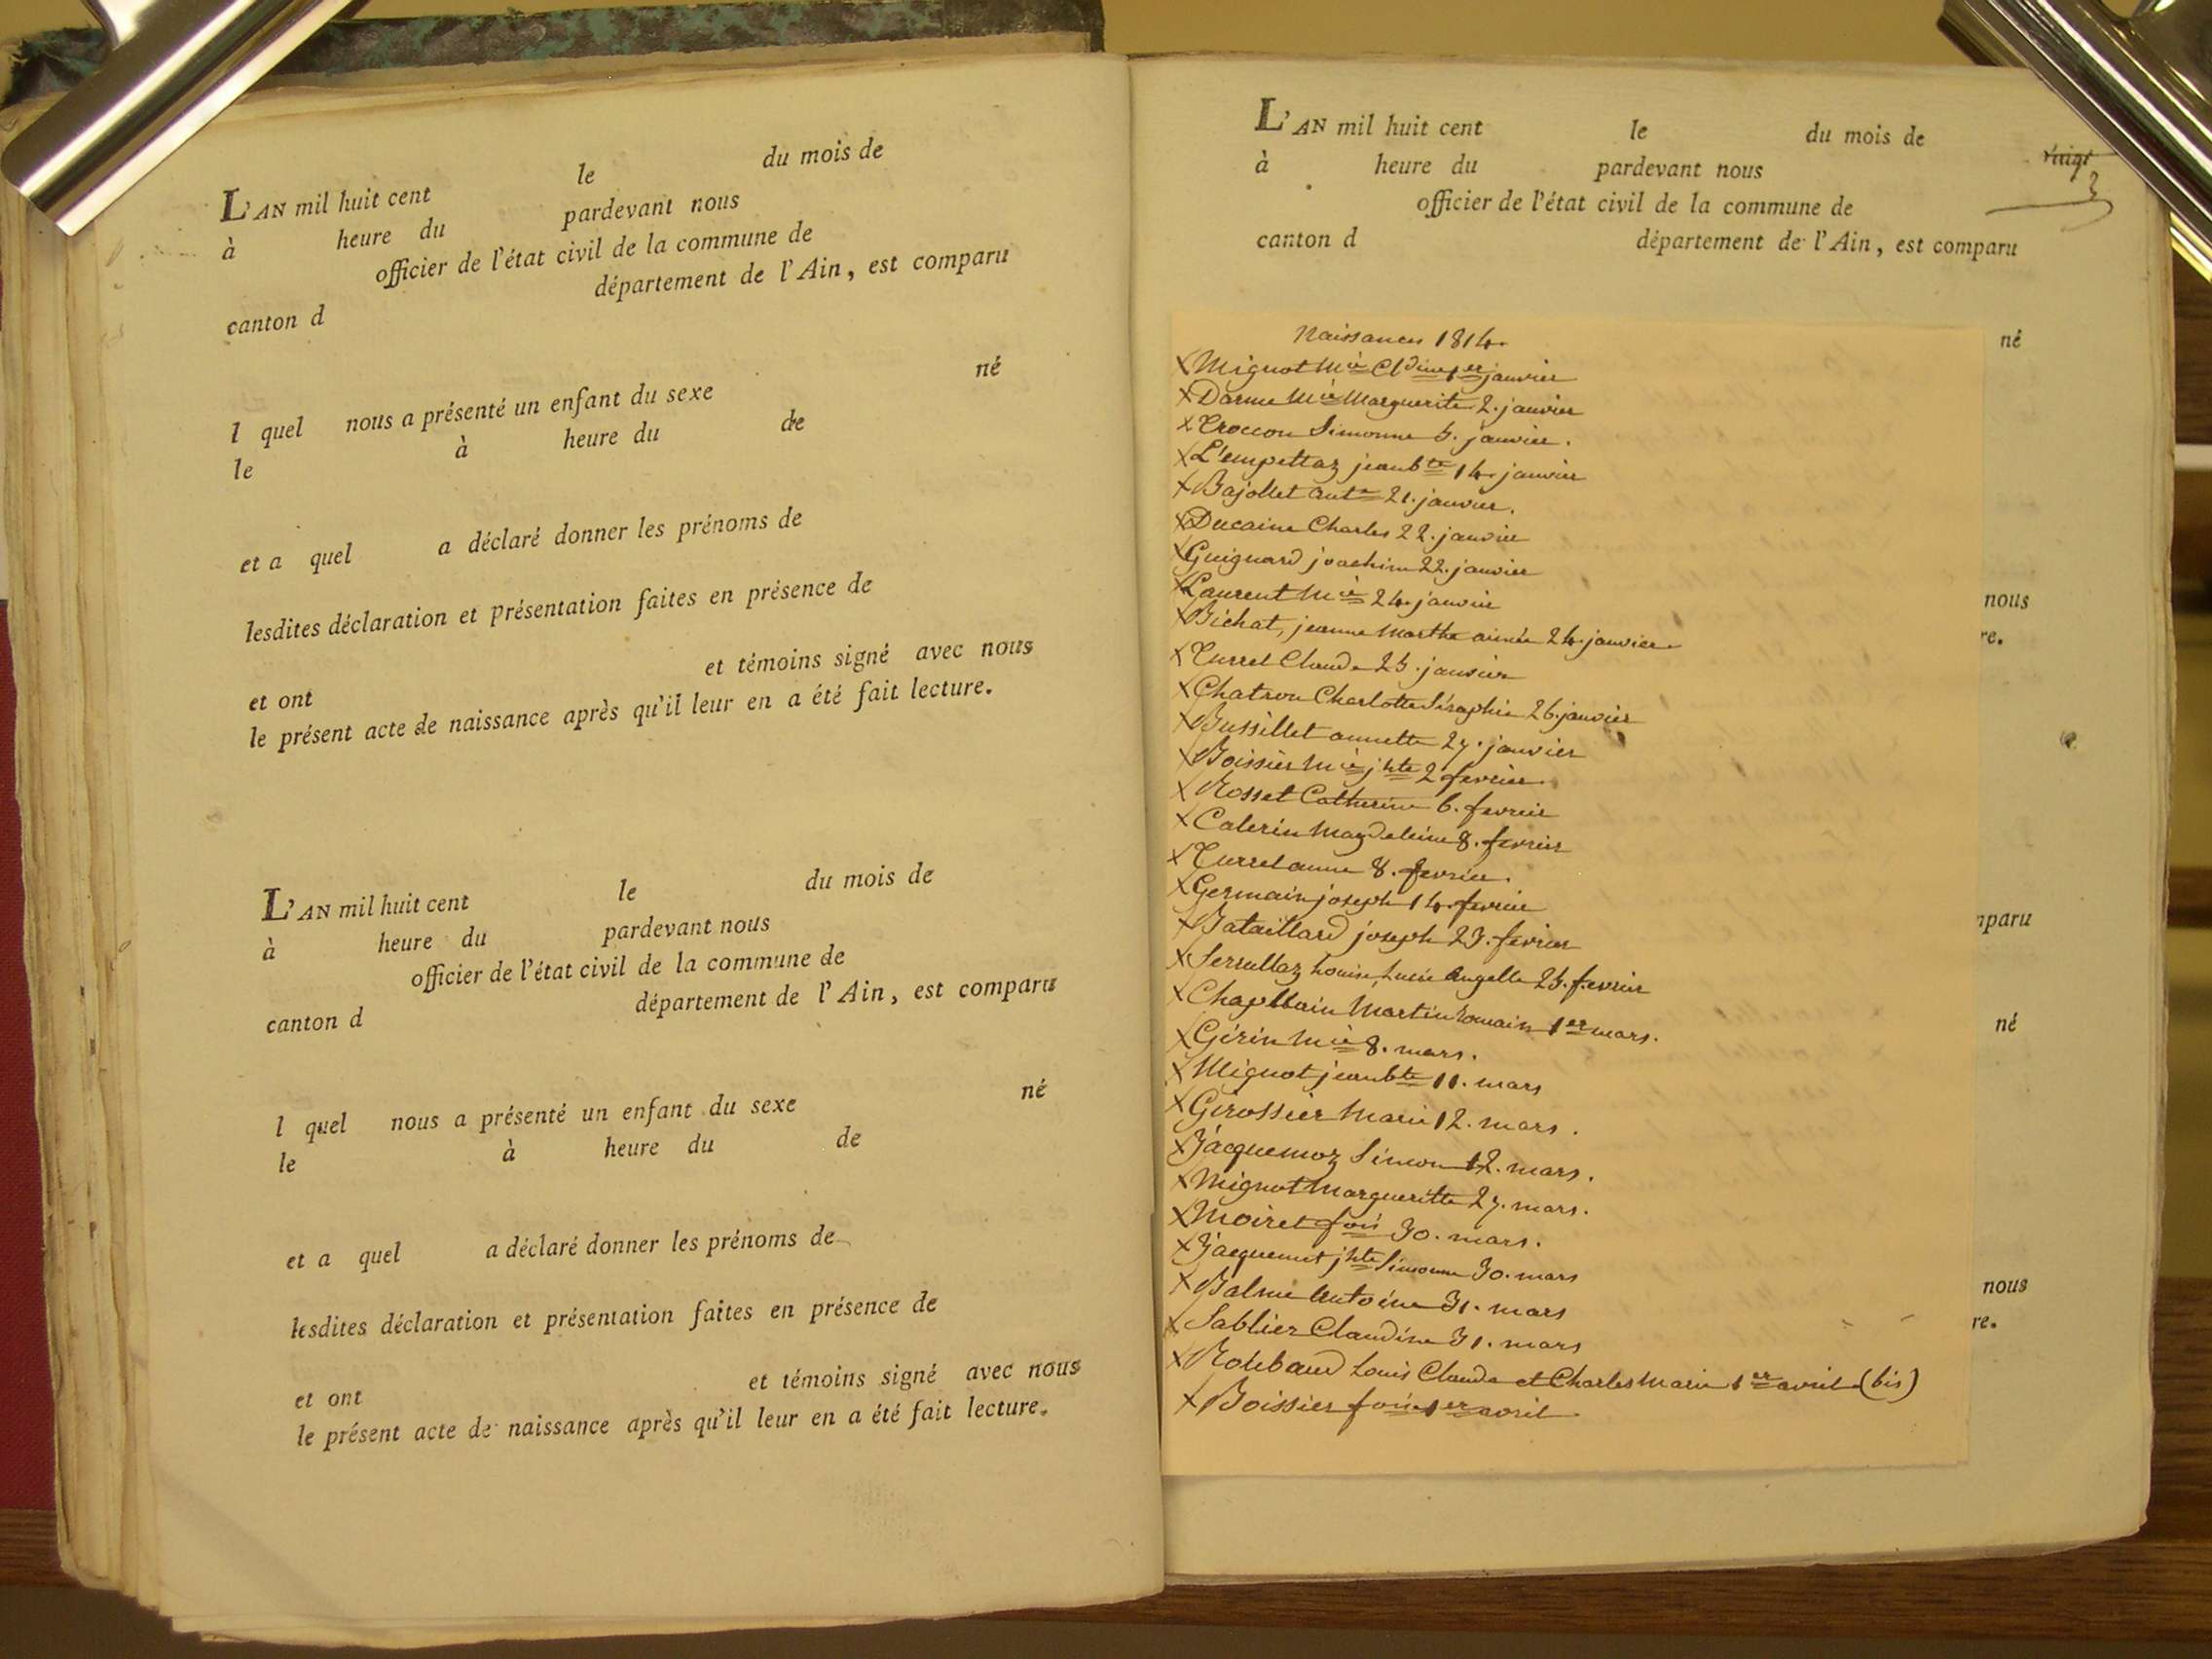 L'AN mil huit cent le du mois de
à heure du pardevant nous
officier de l'état civil de la commune de
canton d département de l'Ain, est comparu
né
l quel nous a présenté un enfant du sexe
le à heure du de
et a quel a déclaré donner les prénoms de
lesdites déclaration et présentation faites en présence de
et ont et témoins signé avec nous
le présent acte de naissance après qu'il leur en a été fait lecture.
L'AN mil huit cent le du mois de
à heure du pardevant nous
officier de l'état civil de la commune de
canton d département de l'Ain, est comparu
né
l quel nous a présenté un enfant du sexe
le à heure du de
et a quel a déclaré donner les prénoms de
lesdites déclaration et présentation faites en présence de
et ont et témoins signé avec nous
le présent acte de naissance après qu'il leur en a été fait lecture.
L'AN mil huit cent le du mois de
à heure du pardevant nous
vingt
3
officier de l'état civil de la commune de
canton d département de l'Ain, est comparu
né
nous
re.
mparu
né
nous
re.
Naissances 1814.
X Mignot Mie Cldine 1er janvier
X Darme Mie Marguerite 2. janvier
X Croccon Simonne 5. janvier.
X L'empettaz jean bte 14. janvier
X Bajollet Ante 21. janvier.
X Ducaine Charles 22. janvier
X Guignard joachim 22. janvier
X Laurent Mie 24. janvier
X Bichat, jeanne Marthe aimée 24. janvier.
X Turrel Claude 25. janvier
X Chatron Charlotte Séraphie 26. janvier
X Bussillet annette 27. janvier
X Boissier Mie jhte 2 fevrier.
X Rosset Catherine 6. fevrier
X Calerin Magdeleine 8. fevrier
X Turrel anne 8. fevrier.
X Germain joseph 14. fevrier
X Bataillard joseph 23. fevrier
X Serrullaz Louise, Lucie Angelle 25. fevrier
X Chapellain Martin Romain 1er mars.
X Gérin Mie 8. mars.
X Mignot jean bte 11. mars
X Girossier Marie 12. mars.
X Jacquemoz Simon 12. mars.
X Mignot Margueritte 27. mars.
X Moiret fois 30. mars.
X Jacquemet jhte Simonne 30. mars
X Balme Antoine 31. mars
X Sablier Claudine 31. mars
X Roubaud Louis Claude et Charles Marie 1er avril (bis)
X Boissier foise 1er avril